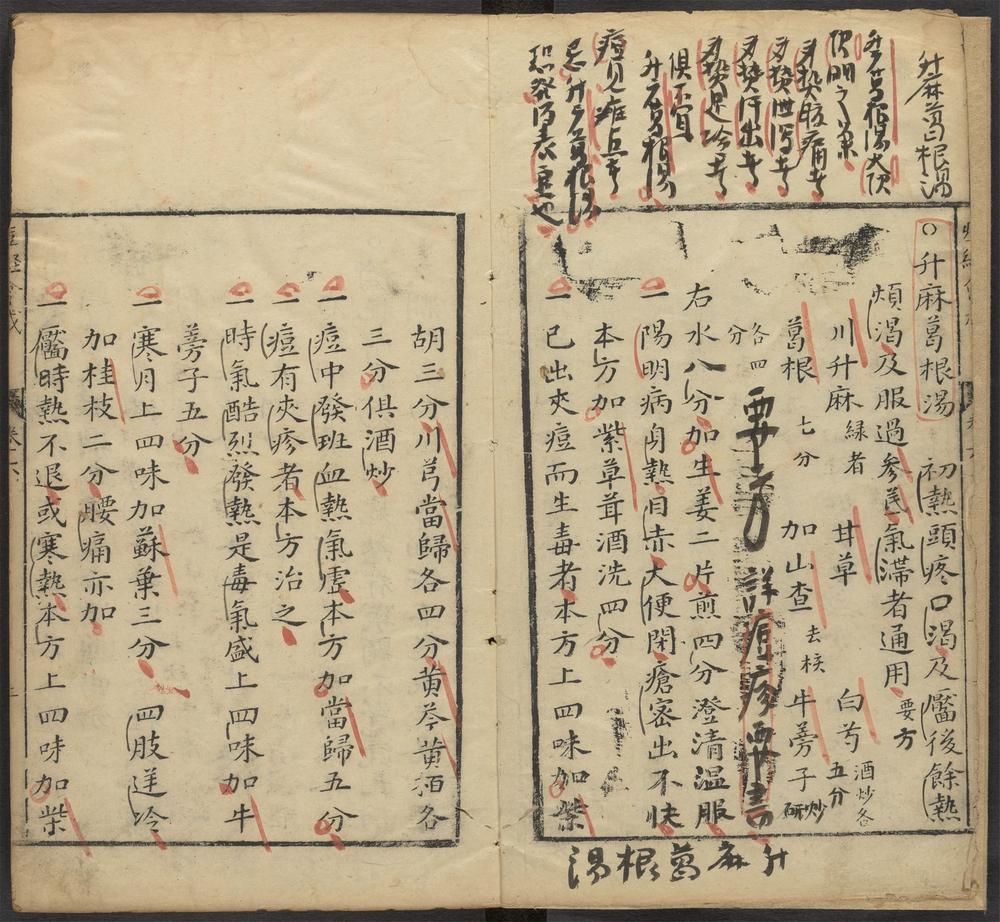 升麻葛根湯
升麻葛根湯大□
身熱腹痛者
身熱泄瀉者
身熱汗出者
身熱足冷者
俱不宜
升麻葛根湯
痘見斑點者
忌升麻葛根湯
恐發得表虛也
○升麻葛根湯 初熱頭疼口渴及靨後餘熱
煩渴及服過參芪氣滯者通用 要方
川升麻 緑者 甘草 白芍 酒炒各五分
葛根 七分 加山查 去核 牛蒡子 炒研
各四分
右水八分加生姜二片煎四分澄清温服
一陽明病身熱目赤大便閉瘡密出不快
本方加紫草茸酒洗四分
一已出夾痘而生毒者本方上四味加柴
升麻葛根湯
胡三分川芎當歸各四分黄芩黄栢各
三分俱酒炒
一痘中發班血熱氣虚本方加當歸五分
一痘有夾疹者本方治之
一時氣酷烈發熱是毒氣盛上四味加牛
蒡子五分
一寒月上四味加蘇葉三分 四肢逆冷
加桂枝二分腰痛亦加
一靨時熱不退或寒熱本方上四味加柴